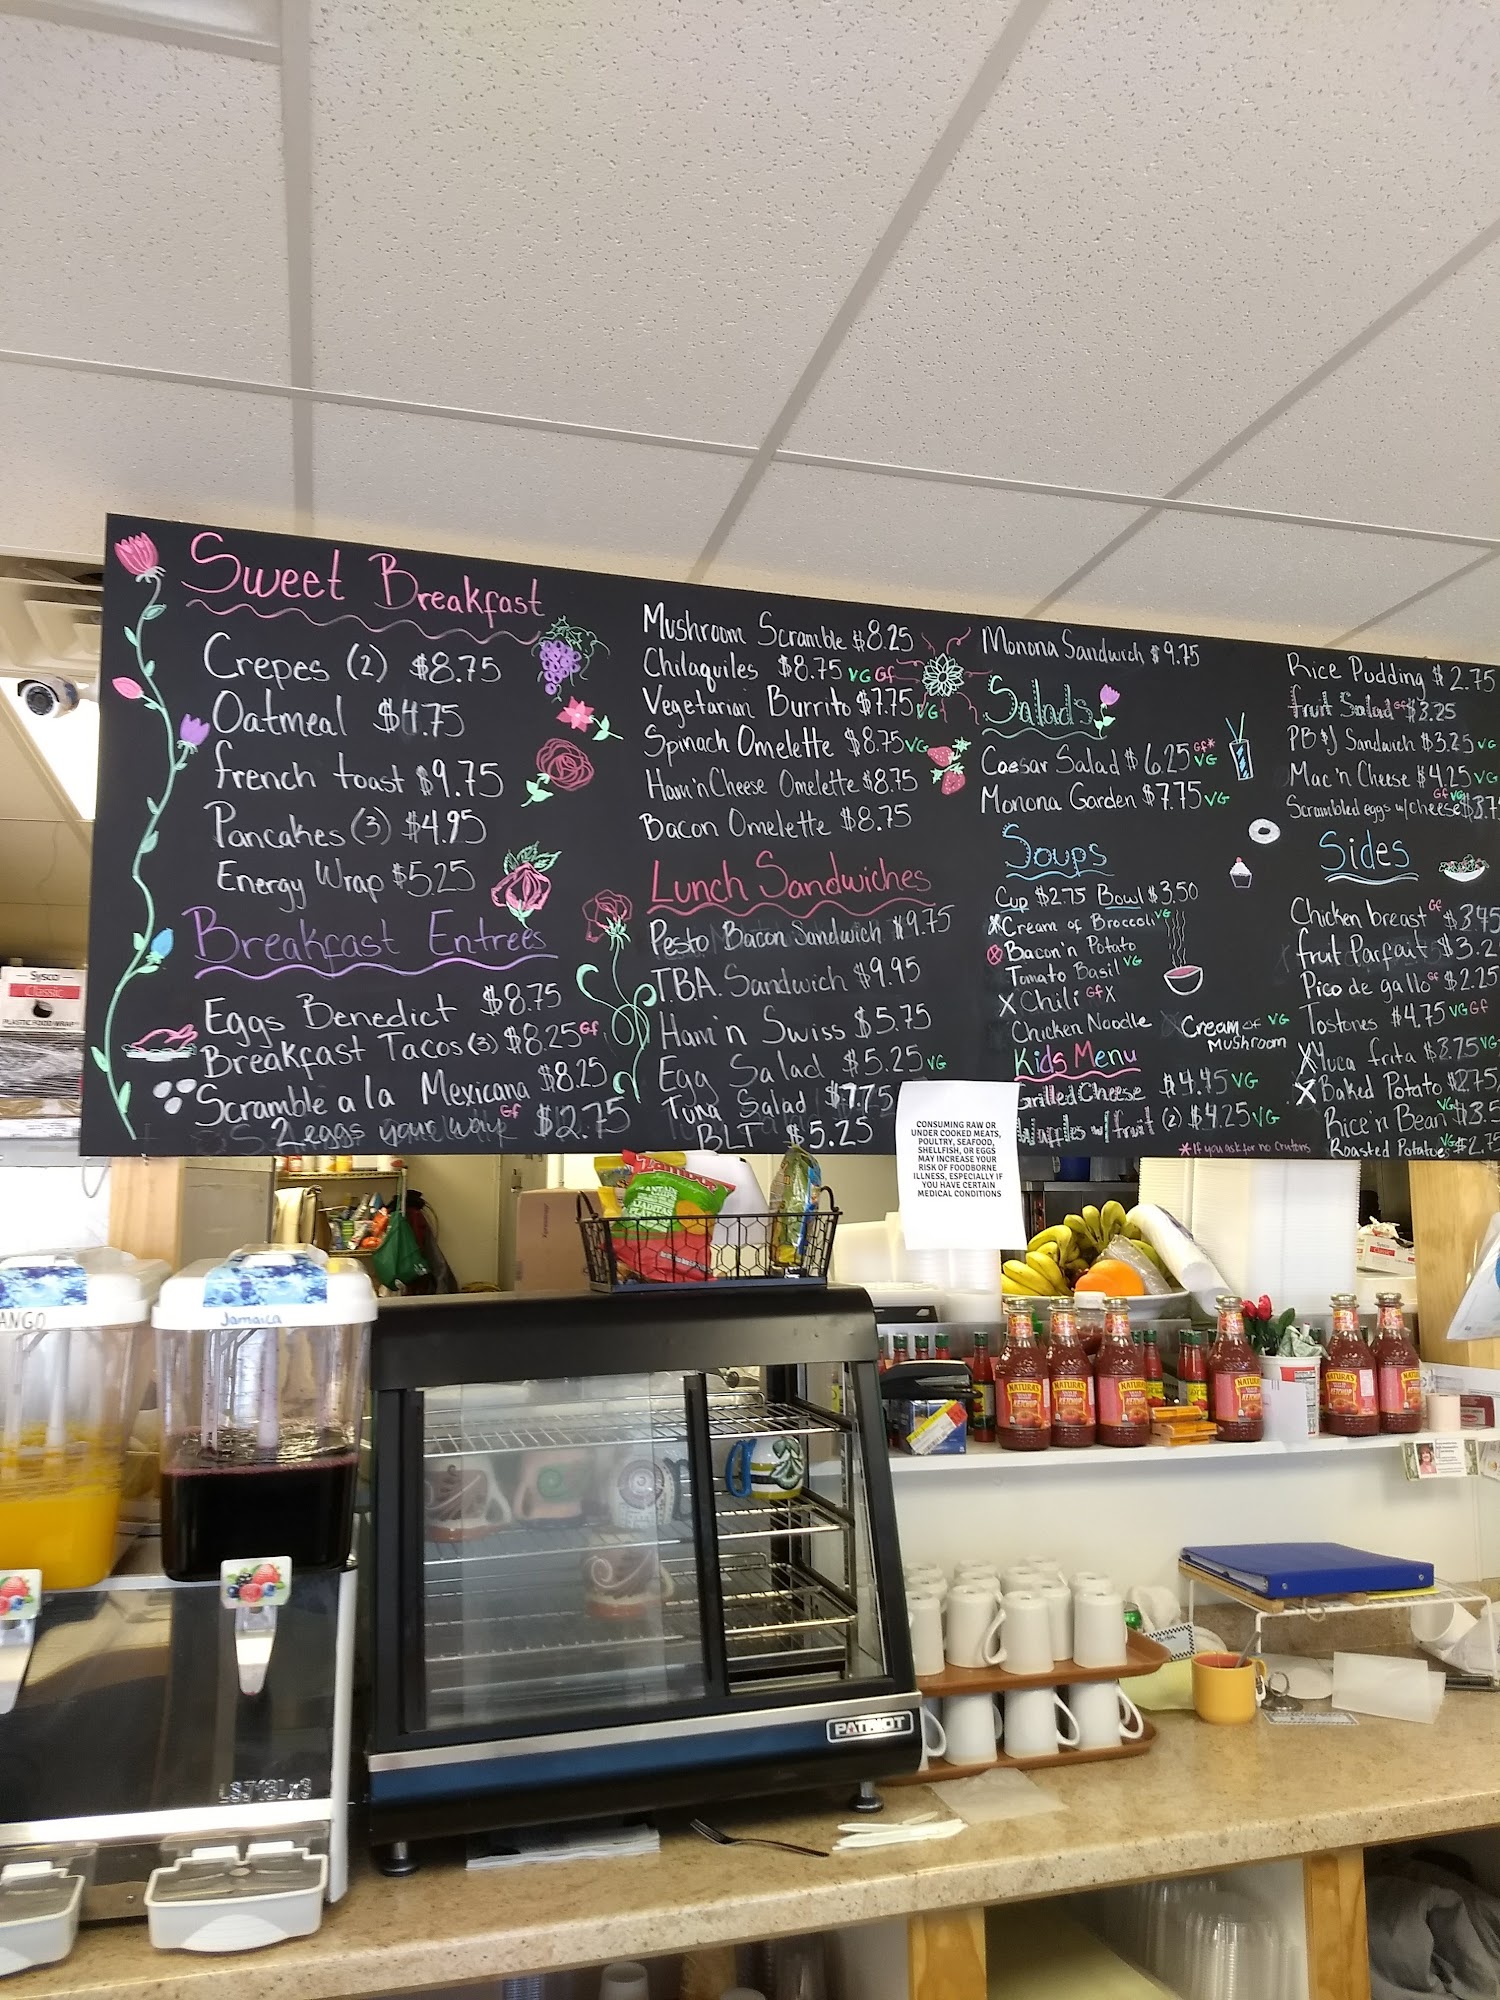 Sweet Breakfast
Crepes (2) $8.75
Oatmeal $4.75
French toast $9.75
Pancakes (3) $4.95
Energy Wrap $5.25
Breakfast Entrees
Eggs Benedict $8.75
Breakfast Tacos (3) $8.25 Gf
Scramble a la Mexicana $8.25
2 eggs your way Gf $2.75
Mushroom Scramble $8.25
Chilaquiles $8.75 VG Gf
Vegetarian Burrito $7.75 VG
Spinach Omelette $8.75 VG
Ham'n Cheese Omelette $8.75
Bacon Omelette $8.75
Lunch Sandwiches
Pesto Bacon Sandwich $9.75
T.B.A. Sandwich $9.95
Ham'n Swiss $5.75
Egg Salad $5.25 VG
Tuna Salad $7.75
BLT $5.25
Monona Sandwich $9.75
Salads
Caesar Salad $6.25 Gf* VG
Monona Garden $7.75 VG
Soups
Cup $2.75 Bowl $3.50
X Cream of Broccoli VG
Bacon'n Potato
Tomato Basil VG
X Chili Gf X
Chicken Noodle
Cream of VG
Mushroom
Kids Menu
Grilled Cheese $4.45 VG
Waffles w/ fruit (2) $4.25 VG
*If you ask for no Crutons
Rice Pudding $2.75
Fruit Salad Gf $3.25
PB&J Sandwich $3.25 VG
Mac'n Cheese $4.25 VG
Scrambled eggs w/cheese Gf VG
Sides
Chicken breast Gf $3.45
Fruit Parfait $3.2
Pico de gallo Gf $2.25
Tostones $4.75 VG Gf
X Yuca frita $3.75 VG
X Baked Potato $2.75
Rice'n Bean VG $3.5
Roasted Potatoes VG $2.75
CONSUMING RAW OR
UNDER COOKED MEATS,
POULTRY, SEAFOOD,
SHELLFISH, OR EGGS
MAY INCREASE YOUR
RISK OF FOODBORNE
ILLNESS, ESPECIALLY IF
YOU HAVE CERTAIN
MEDICAL CONDITIONS
Sysco
Classic
PLASTIC FOOD WRAP
ANGO
Jamaica
NATURA'S
KETCHUP
PATRIOT